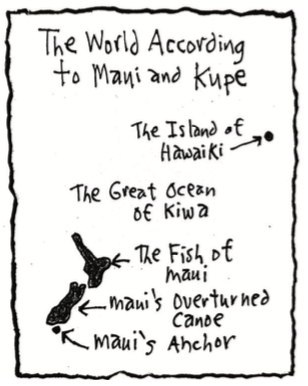 The World According
to Maui and Kupe
The Island of
Hawaiki
The Great Ocean
of Kiwa
The Fish of
maui
maui's Overturned
Canoe
maui's Anchor